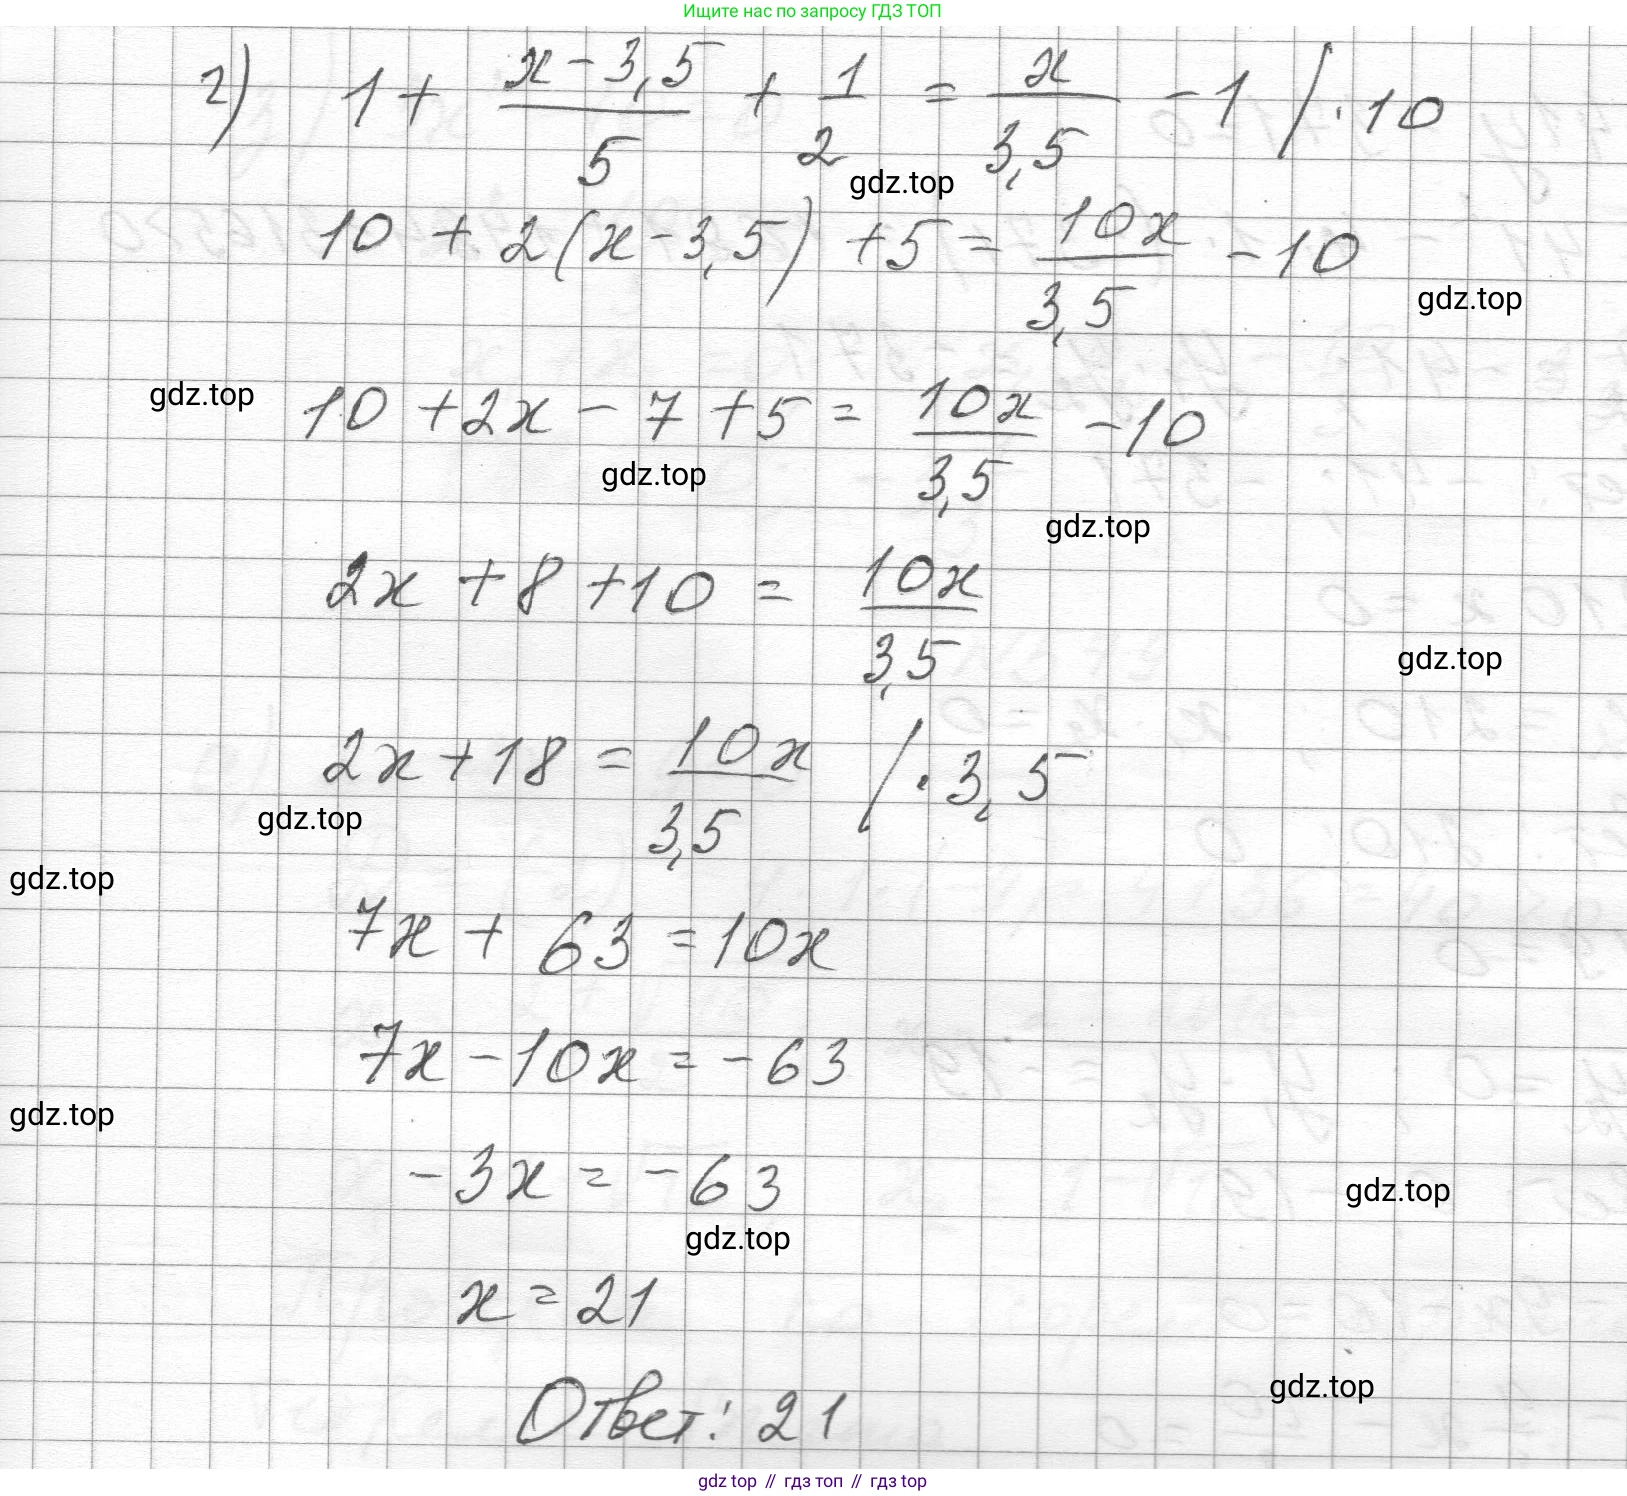 Ищите нас по запросу ГДЗ ТОП
г) 1 + (x - 3,5)/5 + 1/2 = x/3,5 - 1 / · 10
gdz.top
10 + 2(x - 3,5) + 5 = 10x/3,5 - 10
gdz.top
gdz.top
10 + 2x - 7 + 5 = 10x/3,5 - 10
gdz.top
gdz.top
2x + 8 + 10 = 10x/3,5
gdz.top
2x + 18 = 10x/3,5 / · 3,5
gdz.top
gdz.top
7x + 63 = 10x
7x - 10x = - 63
gdz.top
- 3x = - 63
gdz.top
gdz.top
x = 21
gdz.top
Ответ: 21
gdz top // гдз топ // гдз top